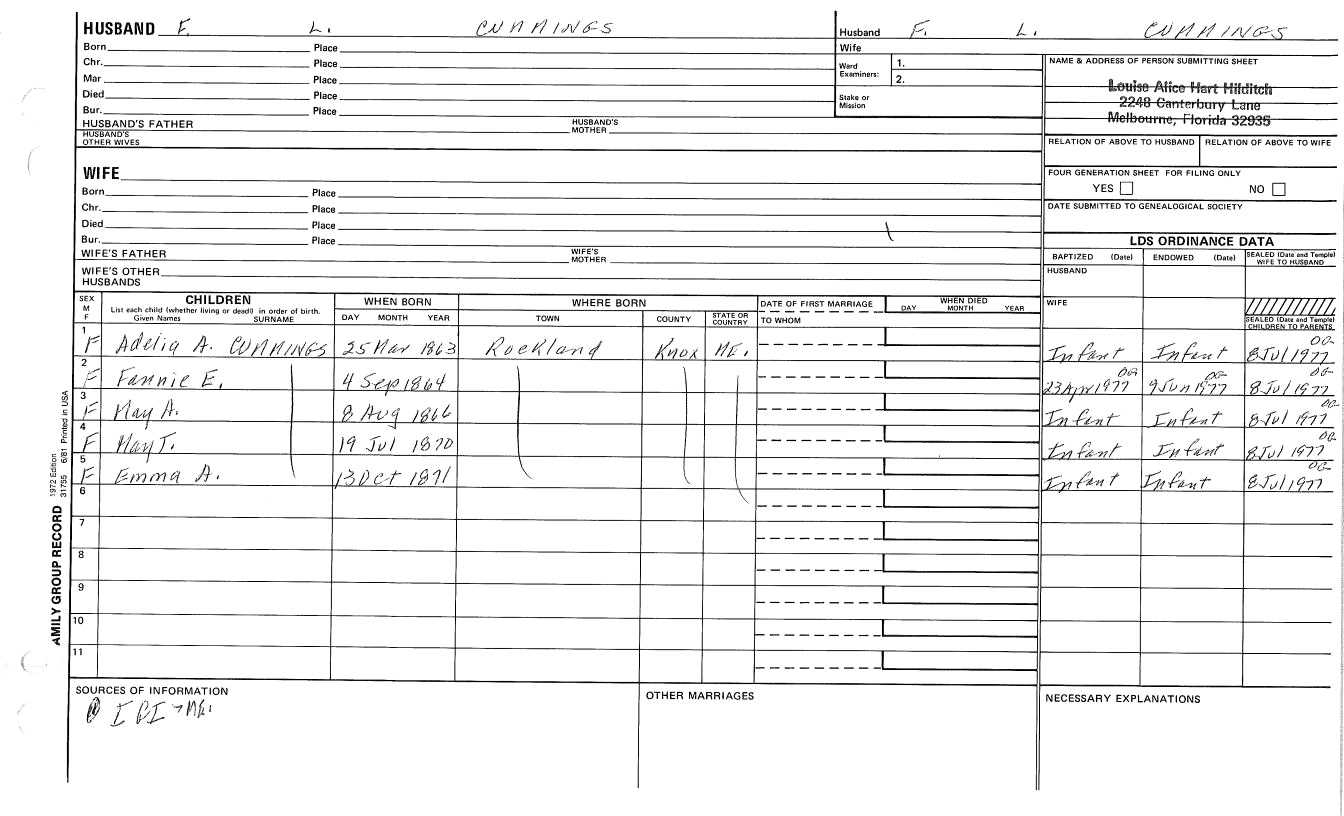 HUSBAND F. L. CUMMINGS
Husband F. L. CUMMINGS
Born Place
Chr. Place
Mar Place
Died Place
Bur. Place
Wife
Ward Examiners: 1.
2.
Stake or Mission
NAME & ADDRESS OF PERSON SUBMITTING SHEET
Louise Alice Hart Hilditch
2248 Canterbury Lane
Melbourne, Florida 32935
HUSBAND'S FATHER HUSBAND'S MOTHER
HUSBAND'S OTHER WIVES
RELATION OF ABOVE TO HUSBAND RELATION OF ABOVE TO WIFE
WIFE
Born Place
Chr. Place
Died Place
Bur. Place
FOUR GENERATION SHEET FOR FILING ONLY
YES NO
DATE SUBMITTED TO GENEALOGICAL SOCIETY
WIFE'S FATHER WIFE'S MOTHER
WIFE'S OTHER HUSBANDS
LDS ORDINANCE DATA
BAPTIZED (Date) ENDOWED (Date) SEALED (Date and Temple) WIFE TO HUSBAND
HUSBAND
WIFE
SEALED (Date and Temple) CHILDREN TO PARENTS
SEX M F
CHILDREN
List each child (whether living or dead) in order of birth.
Given Names SURNAME
WHEN BORN
DAY MONTH YEAR
WHERE BORN
TOWN COUNTY STATE OR COUNTRY
DATE OF FIRST MARRIAGE
TO WHOM
WHEN DIED
DAY MONTH YEAR
1 F Adelia A. CUMMINGS 25 Mar 1863 Rockland Knox ME. Infant Infant 8 Jul 1977 OG
2 F Fannie E. 4 Sep 1864 23 Apr 1977 OG 9 Jun 1977 OG 8 Jul 1977 OG
3 F May A. 8 Aug 1866 Infant Infant 8 Jul 1977 OG
4 F May T. 19 Jul 1870 Infant Infant 8 Jul 1977 OG
5 F Emma A. 13 Oct 1871 Infant Infant 8 Jul 1977 OG
6
7
8
9
10
11
AMILY GROUP RECORD 1972 Edition 31735 6/81 Printed in USA
SOURCES OF INFORMATION
IGI > ME.
OTHER MARRIAGES
NECESSARY EXPLANATIONS